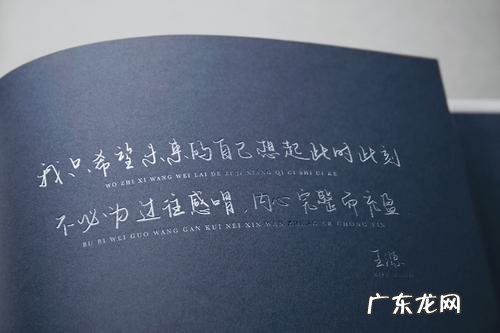 我只希望未来的自己想起此时此刻
WO ZHI XI WANG WEI LAI DE ZI JI XIANG QI CI SHI CI KE
不必为过往感喟，内心完整而充盈
BU BI WEI GUO WANG GAN KUI NEI XIN WAN ZHENG ER CHONG YIN
王源
广东龙网